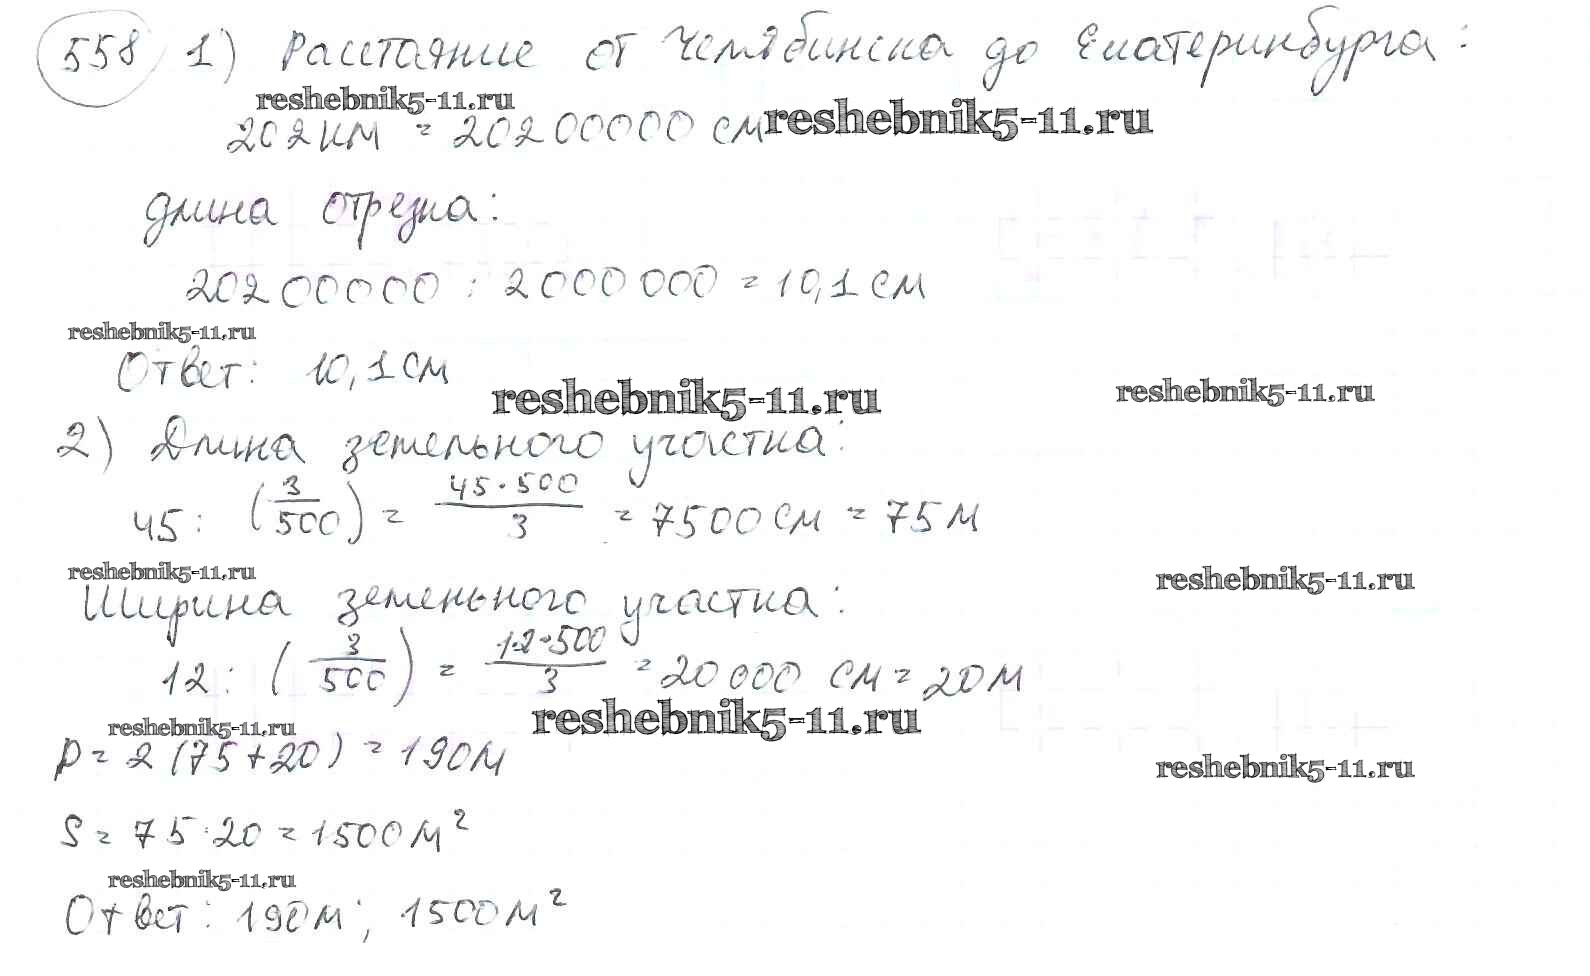 558 1) Расстояние от Челябинска до Екатеринбурга:
reshebnik5-11.ru
202 км = 20200000 см reshebnik5-11.ru
длина отрезка:
20200000 : 2000000 = 10,1 см
reshebnik5-11.ru
Ответ: 10,1 см
reshebnik5-11.ru reshebnik5-11.ru
2) Длина земельного участка:
45 : (3/500) = 45·500/3 = 7500 см = 75 м
reshebnik5-11.ru reshebnik5-11.ru
Ширина земельного участка:
12 : (3/500) = 12·500/3 = 20000 см = 20 м
reshebnik5-11.ru reshebnik5-11.ru
P = 2 (75+20) = 190 м
reshebnik5-11.ru
S = 75·20 = 1500 м²
reshebnik5-11.ru
Ответ: 190 м; 1500 м²